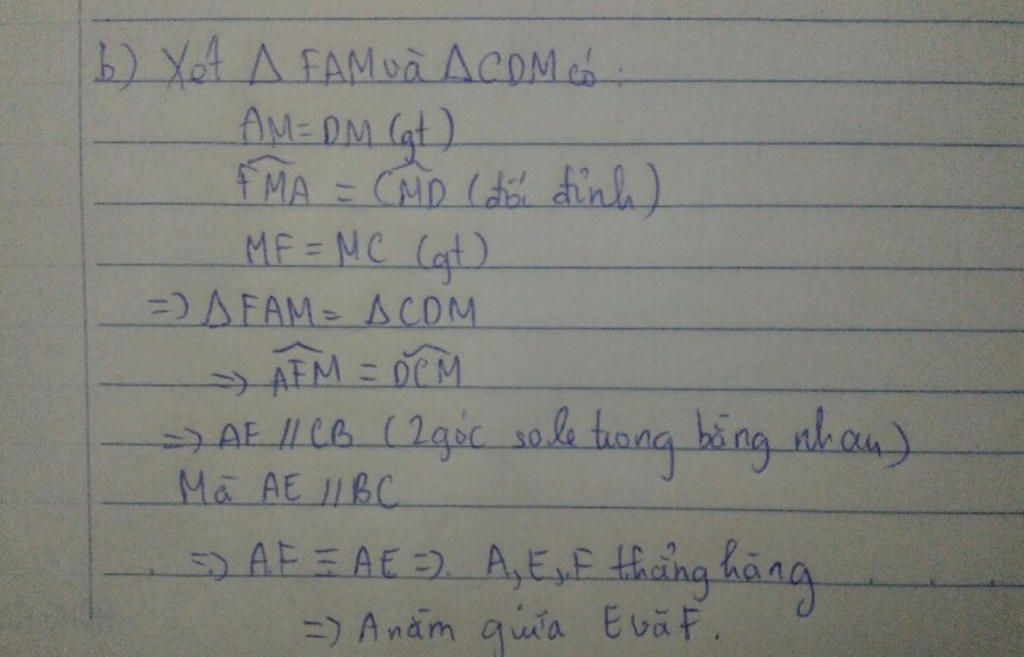 b) Xét Δ FAM và Δ CDM có:
AM = DM (gt)
$\widehat{FMA}$ = $\widehat{CMD}$ (đối đỉnh)
MF = MC (gt)
=> Δ FAM = Δ CDM
=> $\widehat{AFM}$ = $\widehat{DCM}$
=> AF // CB (2 góc so le trong bằng nhau)
Mà AE // BC
=> AF ≡ AE => A, E, F thẳng hàng
=> A nằm giữa E và F.